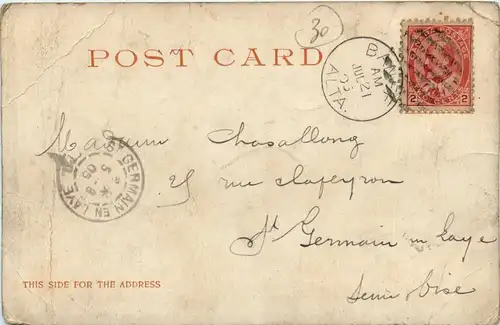 30
POST CARD
BANFF
AM
JUL 21
05
ALTA.
2 2
Madame Chasallong
25 rue
St Germain en Laye
Seine Oise
ST GERMAIN EN LAYE
5
8
05
THIS SIDE FOR THE ADDRESS